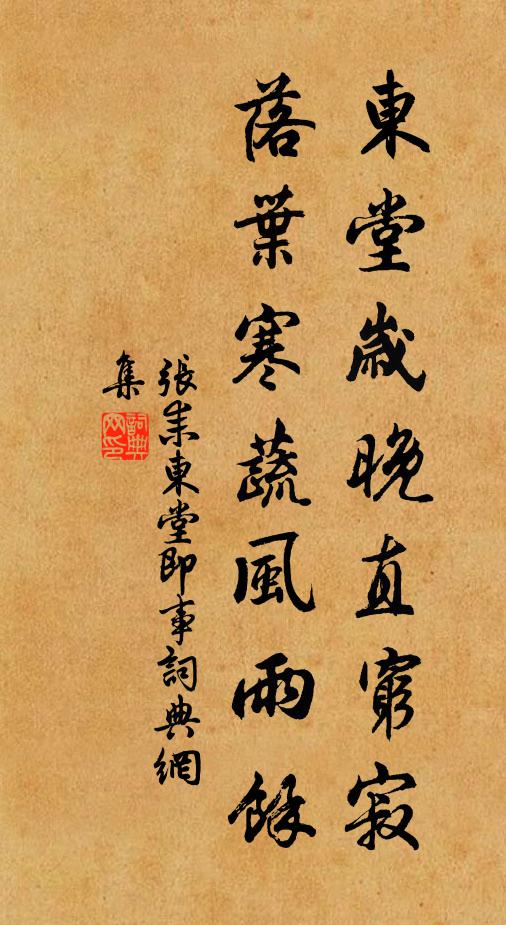 東堂歲晚直窮寂
落葉寒蔬風雨餘
張耒東堂即事詞典網
集
詞典網印